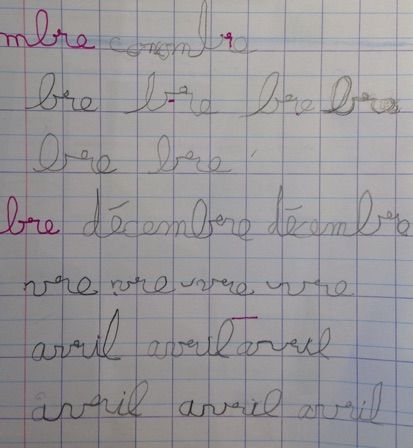 mbre concombre
bre bre bre bre
bre bre
bre décembre décembre
vre vre vre vre
avril avril avril
avril avril avril